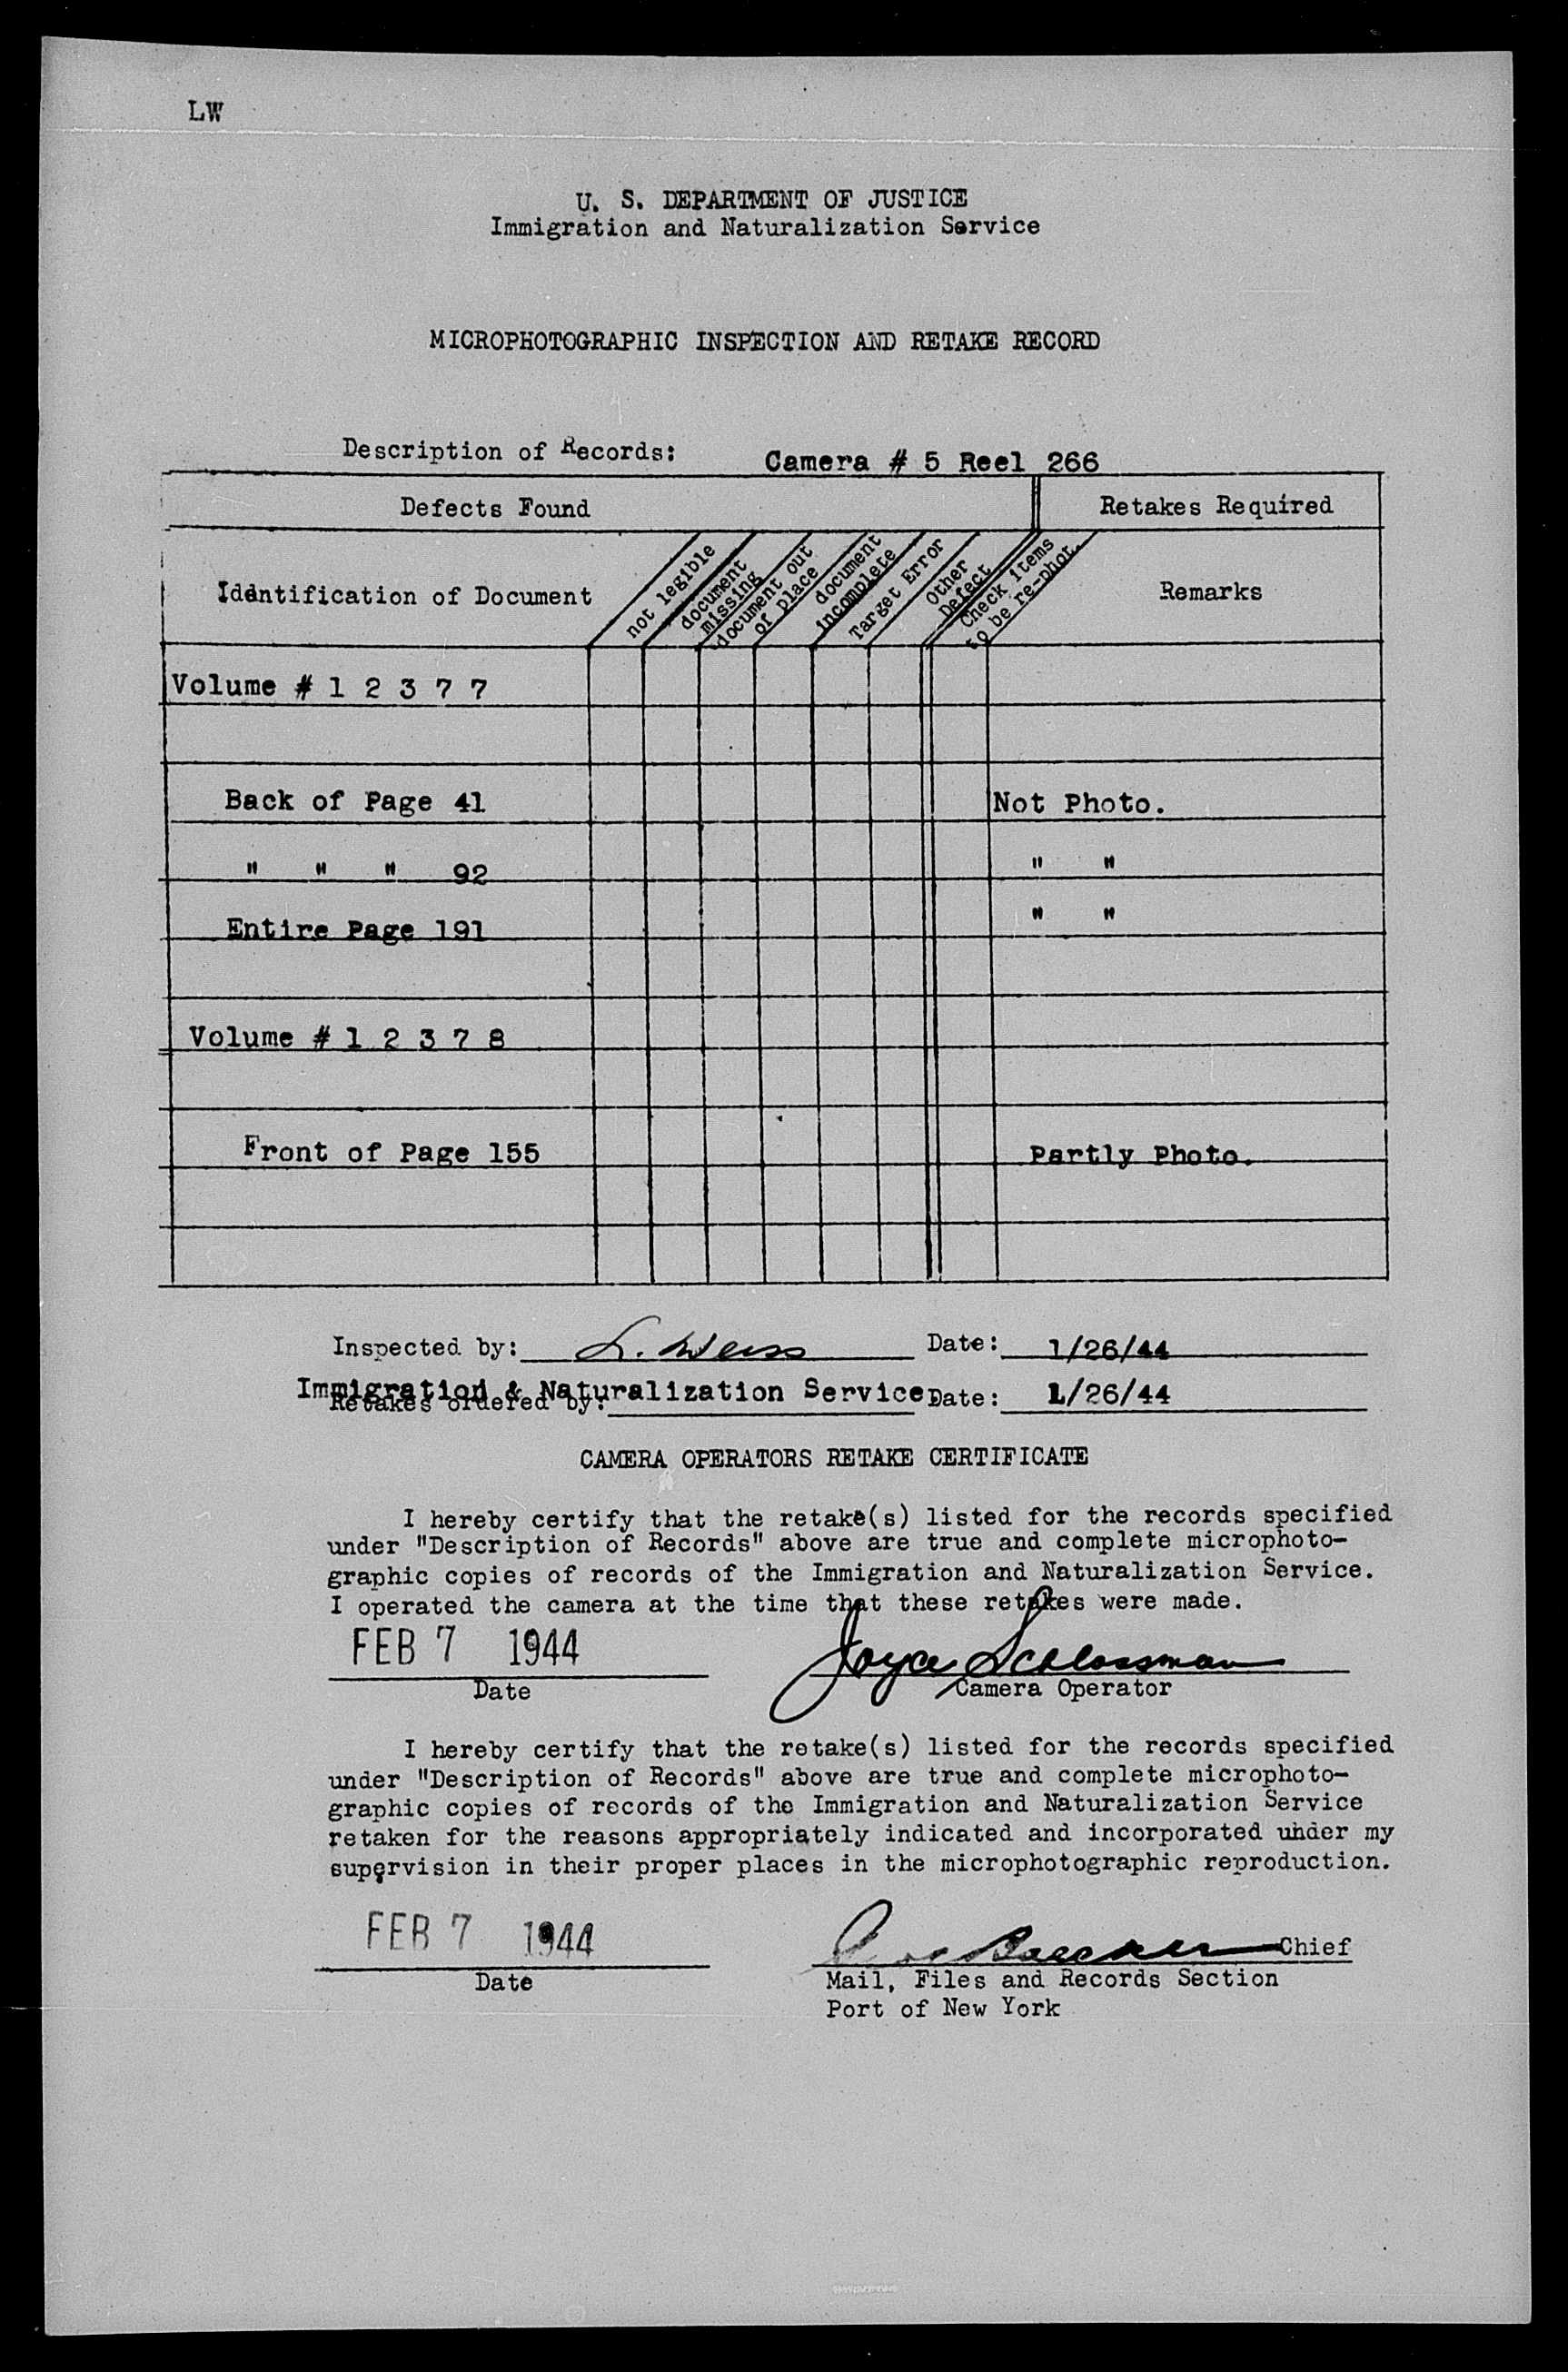 LW
U. S. DEPARTMENT OF JUSTICE
Immigration and Naturalization Service
MICROPHOTOGRAPHIC INSPECTION AND RETAKE RECORD
Description of Records: Camera # 5 Reel 266
Defects Found Retakes Required
Identification of Document
not legible
document
missing
document out
of place
document
incomplete
Target Error
Other
Defect
Check items
to be re-phot.
Remarks
Volume # 1 2 3 7 7
Back of Page 41 Not Photo.
" " " 92 " "
Entire Page 191 " "
Volume # 1 2 3 7 8
Front of Page 155 Partly Photo.
Inspected by: L. Weiss Date: 1/26/44
Immigration & Naturalization Service
Retakes ordered by: Date: 1/26/44
CAMERA OPERATORS RETAKE CERTIFICATE
I hereby certify that the retake(s) listed for the records specified
under "Description of Records" above are true and complete microphoto-
graphic copies of records of the Immigration and Naturalization Service.
I operated the camera at the time that these retakes were made.
FEB 7 1944 Joyce Schlossman
Date Camera Operator
I hereby certify that the retake(s) listed for the records specified
under "Description of Records" above are true and complete microphoto-
graphic copies of records of the Immigration and Naturalization Service
retaken for the reasons appropriately indicated and incorporated under my
supervision in their proper places in the microphotographic reproduction.
FEB 7 1944 Chief
Date Mail, Files and Records Section
Port of New York